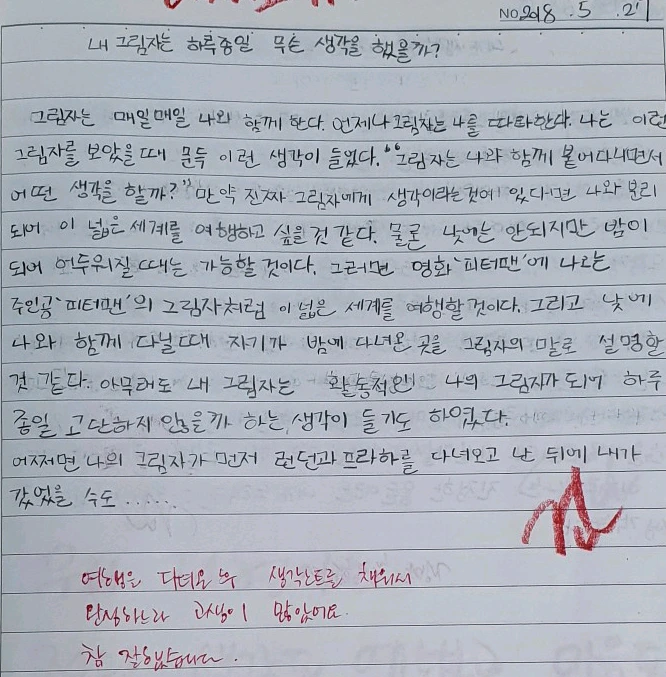 NO 2018 . 5 . 21
내 그림자는 하루종일 무슨 생각을 했을까?
그림자는 매일매일 나와 함께 한다. 언제나 그림자는 나를 따라한다. 나는 이런
그림자를 보았을때 문득 이런 생각이 들었다. "그림자는 나와 함께 붙어다니면서
어떤 생각을 할까?" 만약 진짜 그림자에게 생각이라는것이 있다면 나와 분리
되어 이 넓은 세계를 여행하고 싶을것 같다. 물론 낮에는 안되지만 밤이
되어 어두워질 때는 가능할 것이다. 그러면 영화 '피터팬'에 나오는
주인공 '피터팬'의 그림자처럼 이 넓은 세계를 여행할것이다. 그리고 낮에
나와 함께 다닐때 자기가 밤에 다녀온 곳을 그림자의 말로 설명할
것 같다. 아무래도 내 그림자는 활동적인 나의 그림자가 되어 하루
종일 고단하지 않을까 하는 생각이 들기도 하였다.
어쩌면 나의 그림자가 먼저 런던과 프라하를 다녀오고 난 뒤에 내가
갔었을 수도 ......
여행을 다녀온 후 생각노트를 채워서
완성하느라 고생이 많았어요.
참 잘했습니다.